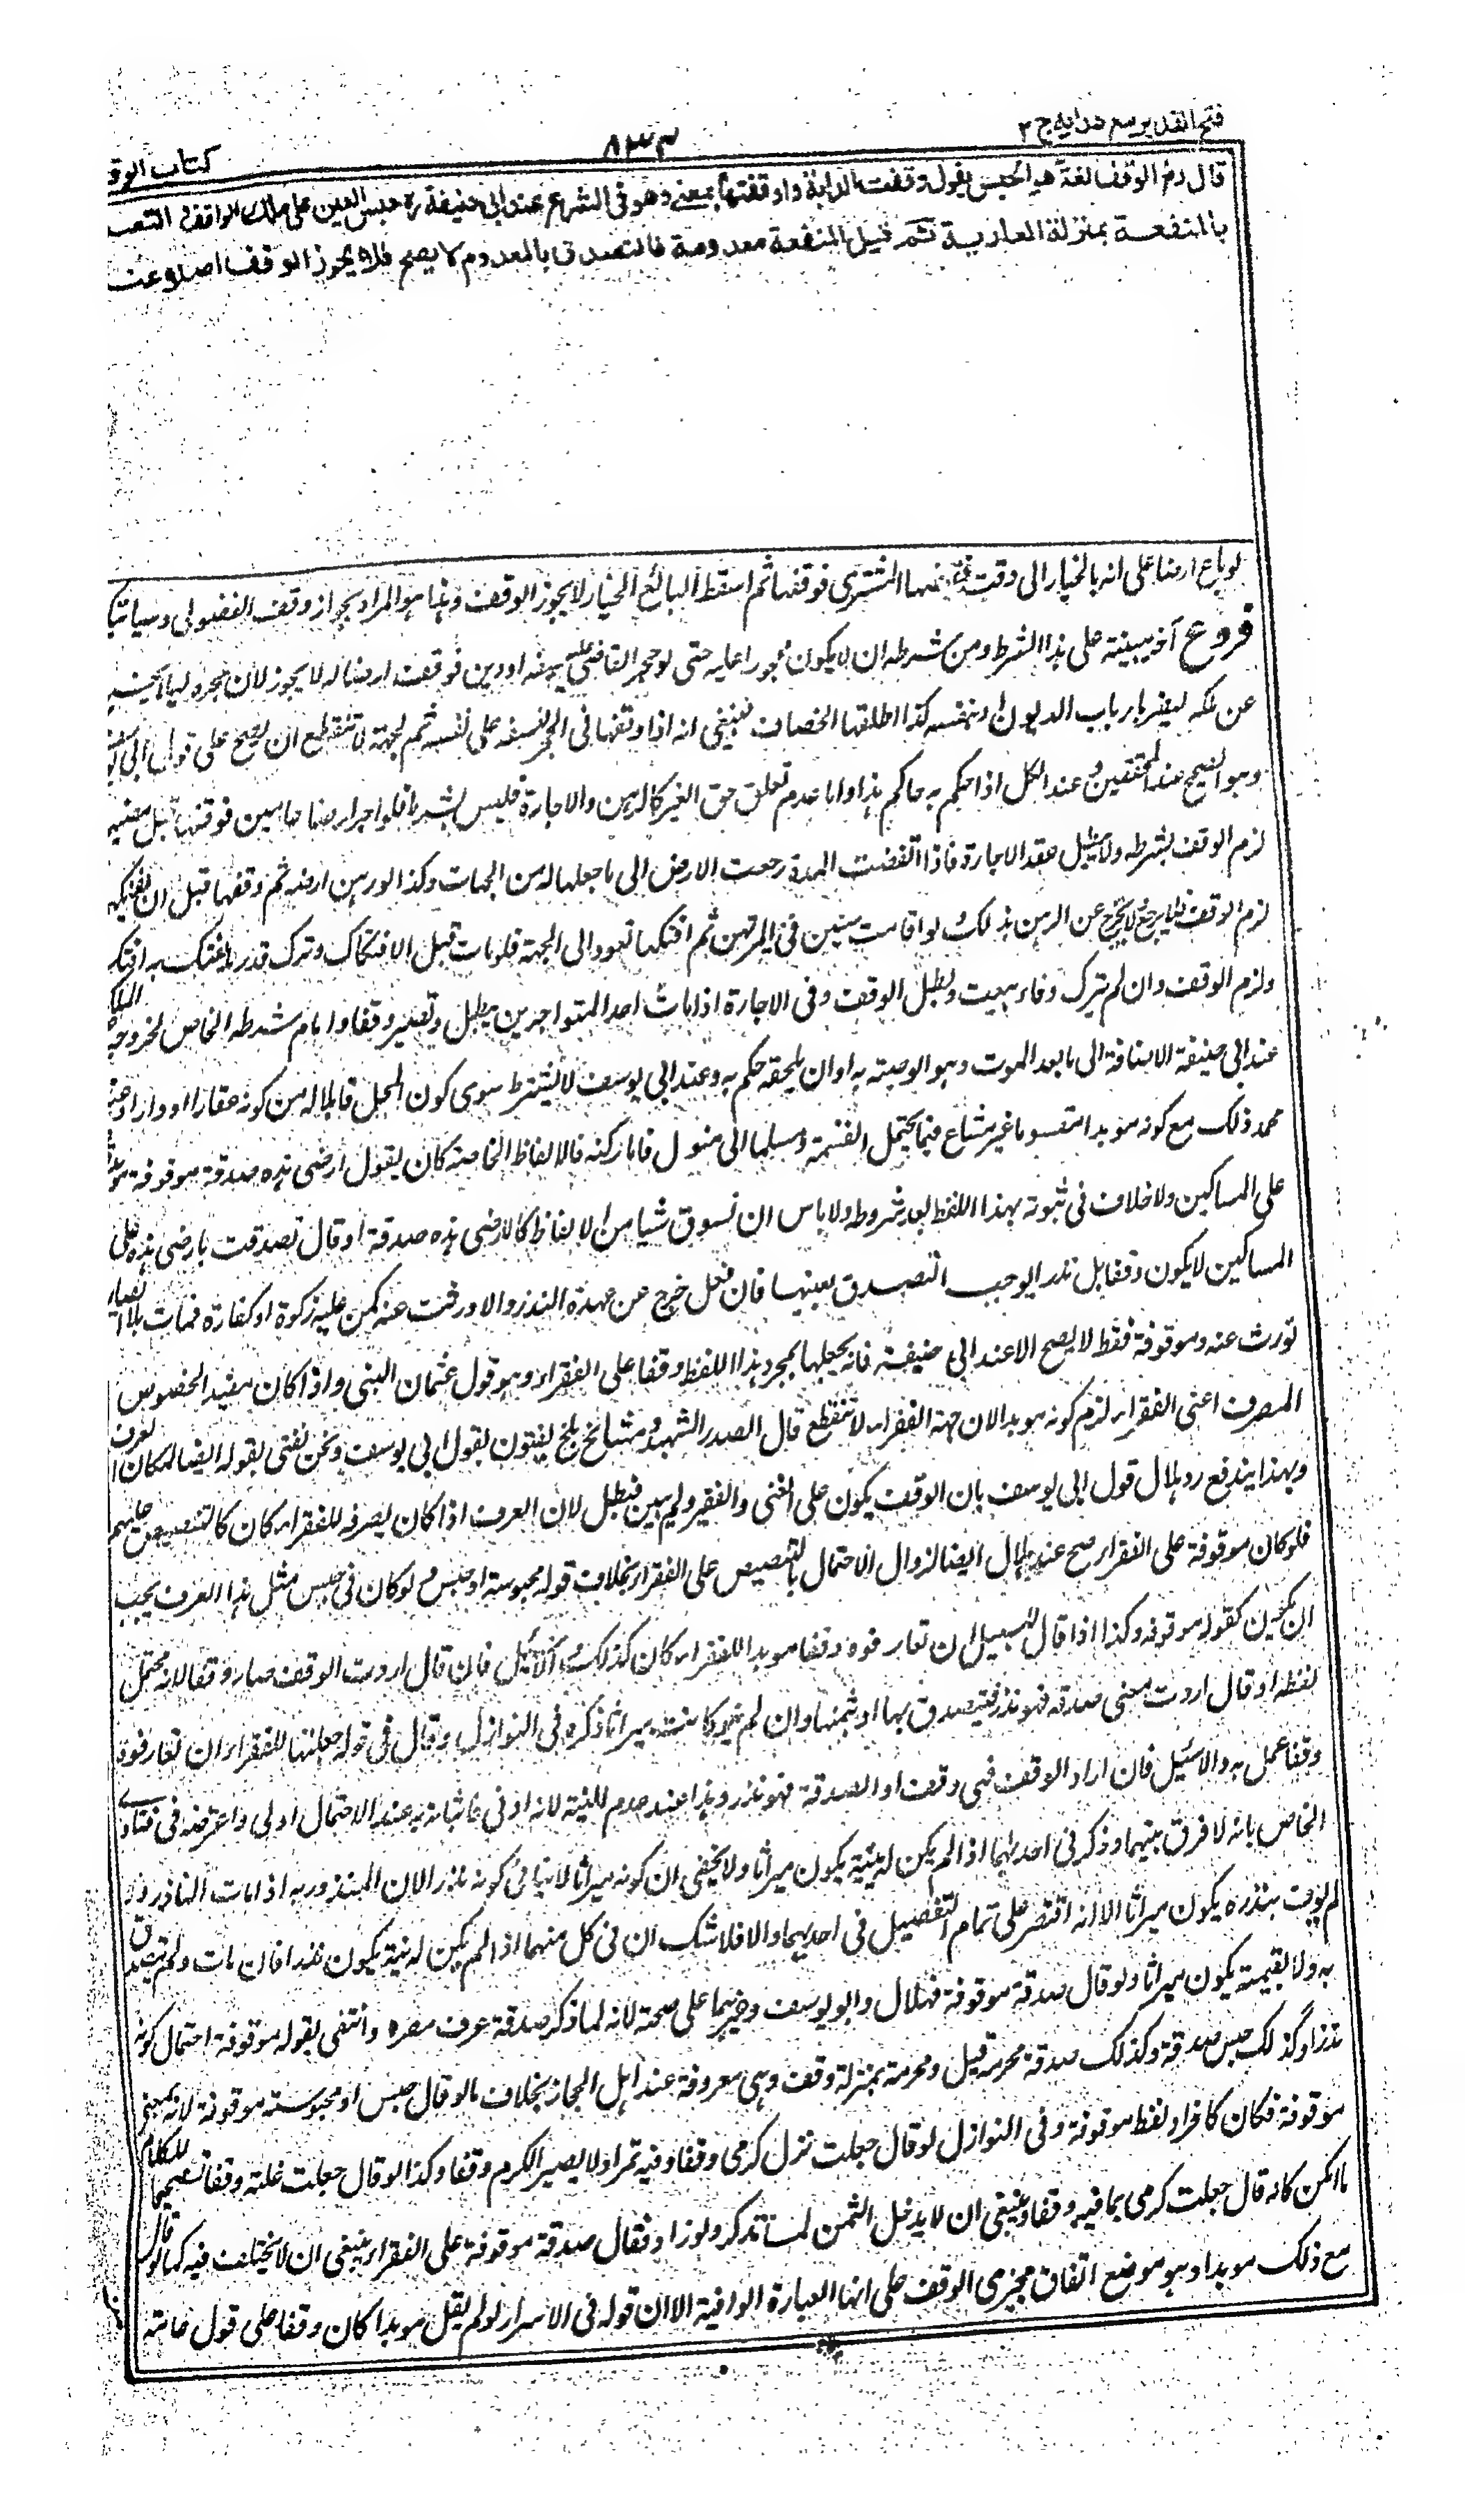 فتح القدير مع هدايه ج ٢
٨٣٣
كتاب الوق
قال رم الوقف لغة هو الحبس يقول وقفت الدابة واوقفتها بمعنى وهو فى الشرع عند ابى حنيفة ره حبس العين على ملك الواقف والتصد
بالمنفعة بمنزلة العارية ثم قيل المنفعة معدومة فالتصدق بالمعدوم لا يصح فلا يجوز الوقف اصلا وعند
لو باع ارضا على انه بالخيار الى وقت المشترى فوقفها ثم اسقط البائع الخيار لا يجوز الوقف وهذا هو المراد بجواز وقف الفضولى وسياتيك
فروع اخر مبينة على هذا الشرط ومن شرطه ان لا يكون محجورا عليه حتى لو حجر القاضى عليه لسفه او دين فوقف ارضا له لا يجوز لان حجره لئلا يخرج
عن ملكه ليضر بارباب الديون او بنفسه كذا اطلقها الخصاف ينبغى انه اذا وقفها فى الحجر لسفه على نفسه ثم لجهة لا تنقطع ان يصح على قول ابى يوسف
وهو الصحيح عند المحققين وعند الكل اذا حكم به حاكم هذا واما عدم تعلق حق الغير كالرهن والاجارة فليس بشرط فلو اجر ارضا عامين فوقفها قبل مضيها
لزم الوقف بشرطه ولا يبطل عقد الاجارة فاذا انقضت المدة رجعت الارض الى ما جعلها له من الجهات وكذا لو رهن ارضه ثم وقفها قبل ان يفتكها
لزم الوقف ولا يخرج عن الرهن بذلك ولو اقامت سنين فى يد المرتهن ثم افتكها تعود الى الجهة فلو مات قبل الافتكاك وترك قدر ما يفتك به افتك
ولزم الوقف وان لم يترك وفاء بيعت وبطل الوقف وفى الاجارة اذا مات احد المتواجرين يبطل وتصير وقفا واما شرطه الخاص لخروجه
عند ابى حنيفة الاضافة الى ما بعد الموت وهو الوصية به او ان يلحقه حكم به وعند ابى يوسف لا يشترط سوى كون المحل قابلا له من كونه عقارا او دارا وعند
محمد ذلك مع كونه موبدا مقسوما غير مشاع فيما يحتمل القسمة ومسلما الى متول فاما ركنه فالالفاظ الخاصة كان يقول ارضى هذه صدقة موقوفة
على المساكين ولا خلاف فى ثبوته بهذا اللفظ بعد شروطه ولا باس ان نسوق شيا من الالفاظ كالارضى هذه صدقة او قال تصدقت بارضى هذه على
المساكين لا يكون وقفا بل نذر ايوجب التصدق بعينها فان فعل خرج عن عهدة النذر والا ورثت عنه كمن عليه زكوة او كفارة فمات بلا ايصاء
تورث عنه وموقوفة فقط لا يصح الا عند ابى يوسف فانه يجعلها بمجرد هذا اللفظ وقفا على الفقراء وهو قول عثمان البتى واذا كان مفيد الخصوص
المصرف اعنى الفقراء لزم كونه موبدا لان جهة الفقراء لا تنقطع قال الصدر الشهيد ومشايخ بلخ يفتون بقول ابى يوسف ونحن نفتى بقوله ايضا لمكان العرف
وبهذا يندفع رد هلال قول ابى يوسف بان الوقف يكون على الغنى والفقير ولم يبين فبطل لان العرف اذا كان يصرفه للفقراء كان كالتنصيص عليهم
فلو كان موقوفة على الفقراء صح عند هلال ايضا لزوال الاحتمال بالتنصيص على الفقراء بخلاف قوله محبوسة او حبس ولو كان فى حبس مثل هذا العرف يجب
ان يكون كقوله موقوفة وكذا اذا قال للسبيل ان تعارفوه وقفا موبدا للفقراء كان كذلك والا سئل فان قال اردت الوقف صار وقفا لانه محتمل
لفظه او قال اردت معنى صدقة فهو نذر فيتصدق بها او بثمنها وان لم ينو كانت ميراثا ذكره فى النوازل وقال فى قوله جعلتها للفقراء ان تعارفوه
وقفا عمل به والا سئل فان اراد الوقف فهى وقف او الصدقة فهو نذر وهذا عند عدم النية لانه ادنى فاثباته به عند الاحتمال اولى واعترضه فى فتاوى
الخاص بانه لا فرق بينهما وذكر فى احديهما اذا لم يكن له نية يكون ميراثا ولا يخفى ان كونه ميراثا لا ينافى كونه نذرا لان المنذور به اذا مات الناذر ولم
لم يوف بنذره يكون ميراثا الا انه اقتصر على تمام التفصيل فى احديهما والا فلا شك ان فى كل منهما اذا لم يكن له نية يكون نذرا فان مات ولم يتصدق
به ولا بقيمته يكون ميراثا ولو قال صدقة موقوفة فهلال وابو يوسف وغيرهما على صحة لانه لما ذكر صدقة عرف مصرفه وانتفى بقوله موقوفة احتمال كونه
نذرا وكذلك حبس صدقة وكذلك صدقة محرمة قيل ومحرمة بمنزلة وقف وهى معروفة عند اهل الحجاز بخلاف ما لو قال حبس او محبوسة موقوفة لانه بمعنى
موقوفة فكان كافراد لفظ موقوفة وفى النوازل لو قال جعلت نزل كرمى وقفا وفيه ثمر اولا يصير الكرم وقفا وكذا لو قال جعلت غلته وقفا تصحيحا للكلام
ما امكن كانه قال جعلت كرمى بما فيه وقفا وينبغى ان لا يدخل الثمن لما تذكر ولو زاد فقال صدقة موقوفة على الفقراء ينبغى ان لا يختلف فيه كما لو قال
مع ذلك موبدا وهو موضع اتفاق مجيزى الوقف على انها العبارة الوافية الا ان قوله فى الاسرار لو لم يقل موبدا كان وقفا على قول عامة